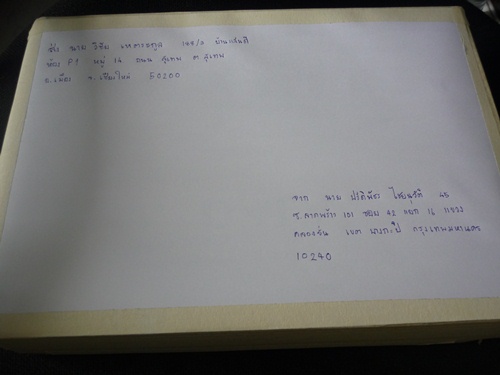 ส่ง นาย วิชัย เหตระกูล 148/3 บ้านแสนดี
ห้อง F1 หมู่ 14 ถนน สุเทพ ต.สุเทพ
อ.เมือง จ.เชียงใหม่ 50200
จาก นาย ไชยนุวัติ 45
ซ.ลาดพร้าว 101 ซอย 42 แยก 16 แขวง
คลองจั่น เขต บางกะปิ กรุงเทพมหานคร
10240